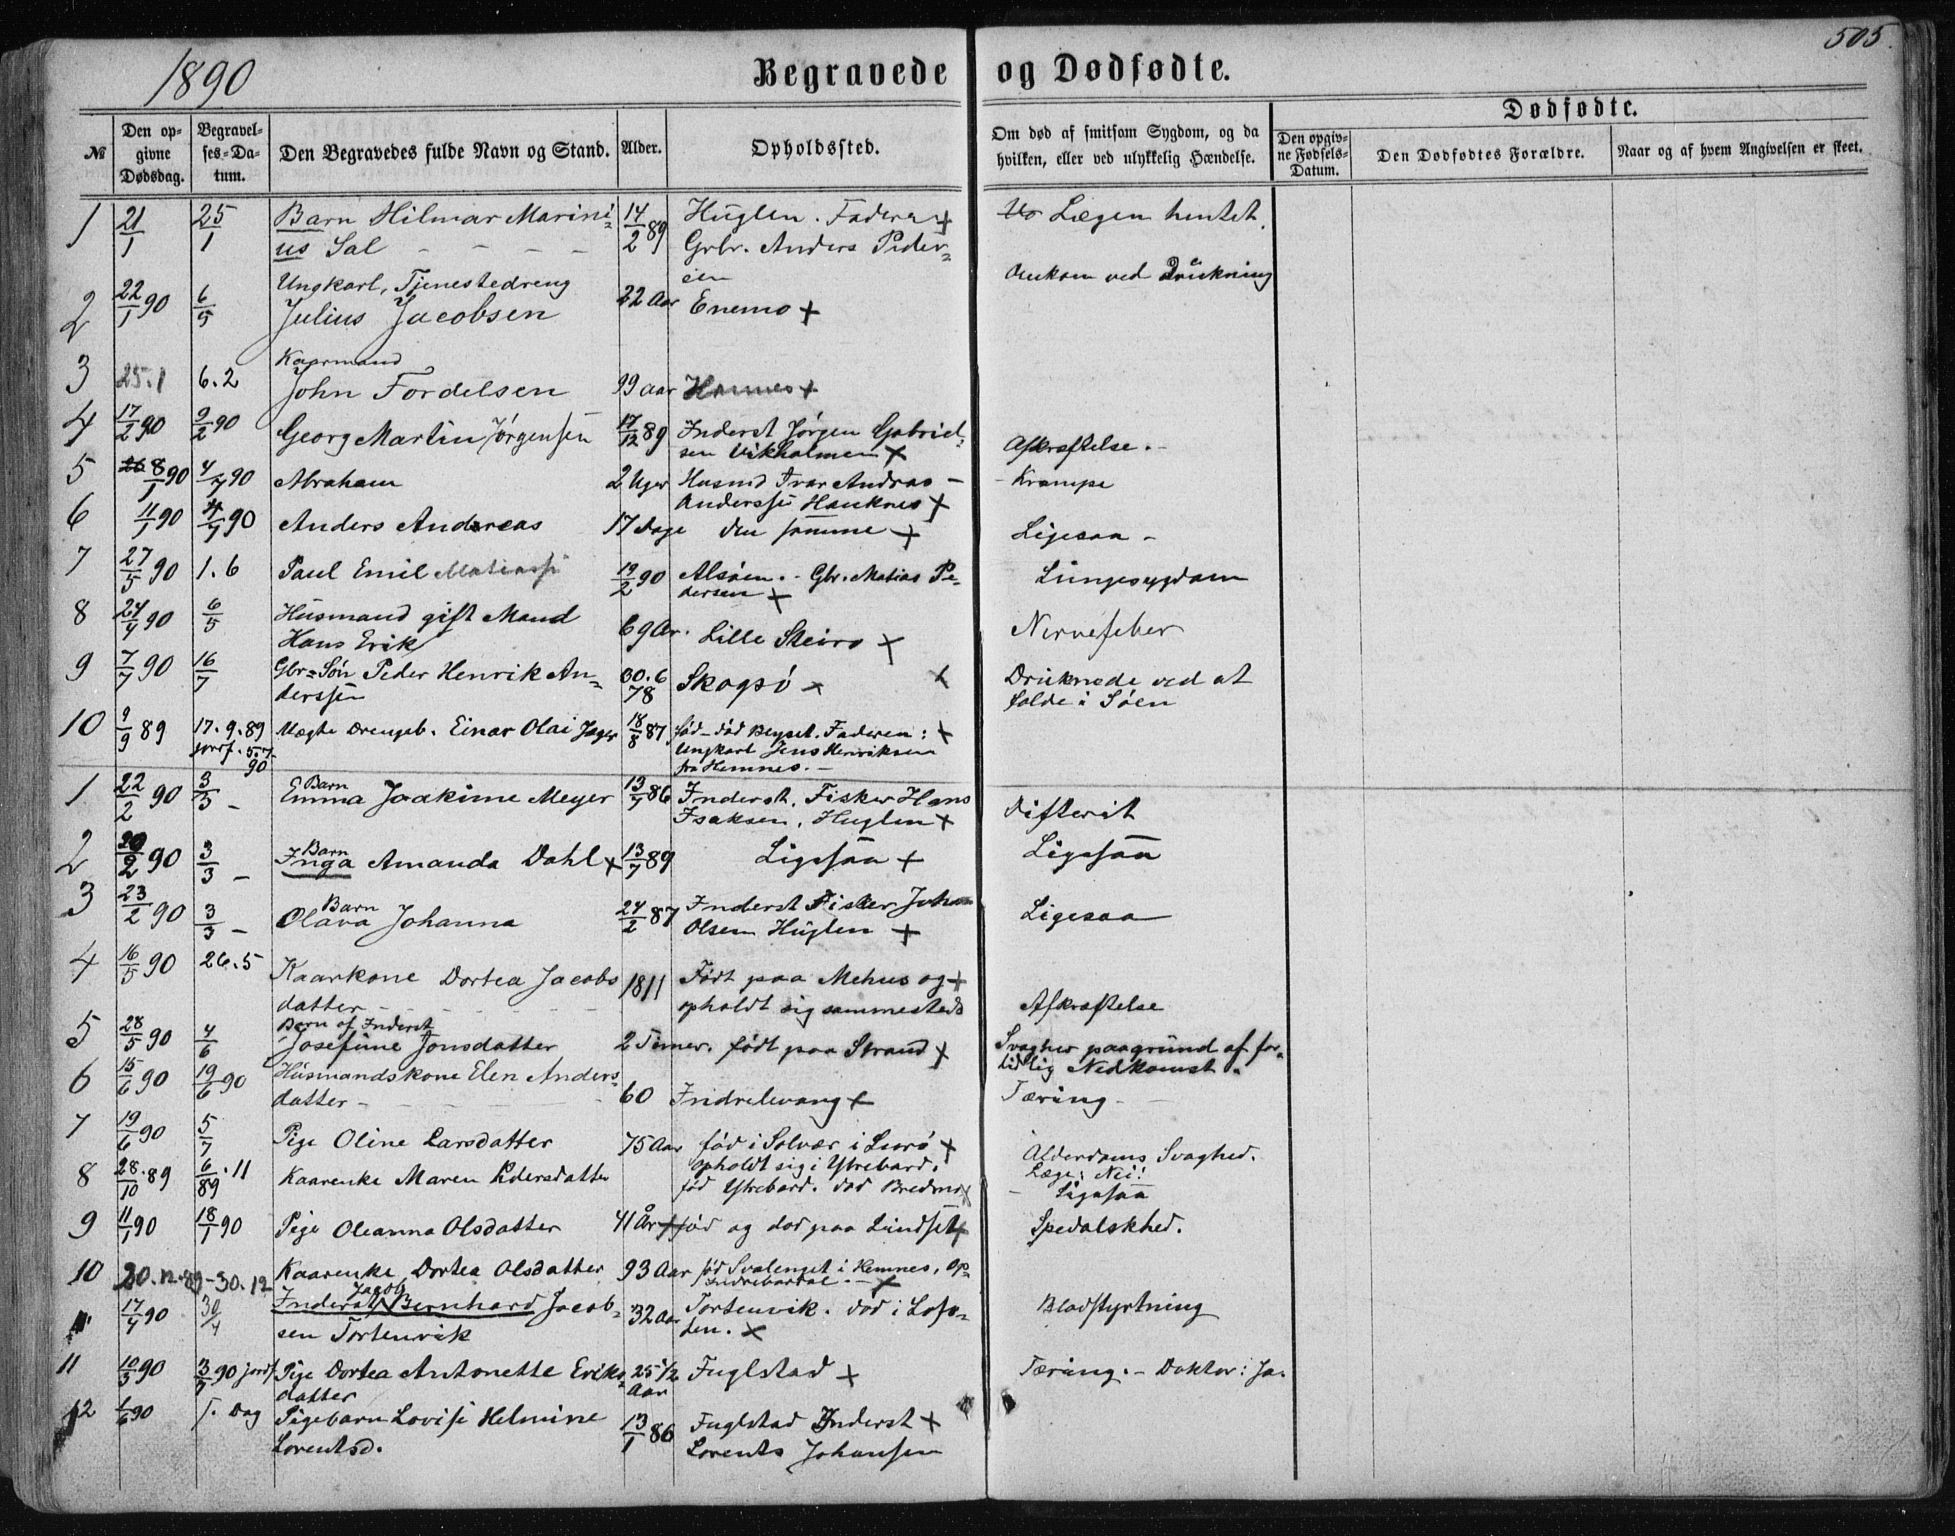 1890
Begravede og Dødfødte.
505.
№
Den opgivne Dødsdag.
Begravelses-Datum.
Den Begravedes fulde Navn og Stand.
Alder.
Opholdssted.
Om død af smitsom Sygdom, og da hvilken, eller ved ulykkelig Hændelse.
Dødfødte.
Den opgivne Fødsels-Datum.
Den Dødfødtes Forældre.
Naar og af hvem Angivelsen er skeet.
1 21/1 25/1 Barn Hilmar Marini- 14/2 89 Huglen. Faderen + Lægen hentet.
us Sal - - - - Grbr. Anders Peder-
sen
2 22/1 90 6/5 Ungkarl, Tjenestedreng 22 Aar Enemo + Omkom ved Drukning
Julius Jacobsen
3 25.1 6.2 Kaarmand
John Tordelsen 99 aar Hemnes +
4 17/2 90 9/2 90 Georg Martin Jørgensen 17/12 89 Inderst Jørgen Gabriel- Afkræftelse.-
sen Vikholmen +
5 8/1 90 4/7 90 Abraham 2 Uger Husmd Ivar Andreas - - Krampe
Anderssen Hauknes +
6 11/1 90 4/7 90 Anders Andreas 17 Dage den samme + Ligesaa -
7 27/5 90 1.6 Paul Emil Matiass 19/2 90 Alsøen.- Gbr. Matias Pe- Lungesygdom
dersen +
8 24/4 90 6/5 Husmand gift Mand 69 Ar. Lille Steiro + Nervefeber
Hans Erik
9 7/7 90 16/7 Gbr=Søn Peder Henrik An- 30.6 78 Skogsø + Druknede ved at
derssen falde i Søen
10 9/9 89 17.9.89 Uægte Drengeb. Einar Olai Jager 18/8 87 fød - død Bleyset. Faderen: +
jordf. 5.7. Ungkarl Jens Henriksen
90 fra Hemnes.-
1 22/2 90 3/3 - Barn
Emma Joakime Meyer 13/7 86 Inderst, Fisker Hans Difterit
Isaksen, Huglen +
2 20/2 90 3/3 - Barn
Inga Amanda Dahl + 13/7 89 Ligesaa + Ligesaa
3 23/2 90 3/3 - Barn
Olava Johanna 24/2 87 Inderst Fisker Johan Ligesaa
Olsen Huglen +
4 16/5 90 26.5 Kaarkone Dortea Jacobs 1811 Født paa Mehus og + Afkræftelse
datter - - - opholdt sig sammesteds
5 28/5 90 4/6 Barn af Inderst
Josefine Jonsdatter 2 Timer. født paa Strand + Svaghed paagrund af for-
tidlig Nedkomst.
6 15/6 90 19/6 90 Husmandskone Elen Anders- 60 Indrelevang + Tæring -
datter - - -
7 19/6 90 5/7 Pige Oline Larsdatter 75 Aar fød i Solvær i Lurø + Alderdoms Svaghed.
opholdt sig i Ytrebard. Læge: Nei!
8 28/10 89 6/11 89 Kaarenke Maren Pdersdatter fød Ytrebard. død Bredmo x - Ligesaa
9 11/1 90 18/1 90 Pige Oleanna Olsdatter 41 År + fød og død paa Lindset + Spedalskhed.
10 20.12.89 - 30.12 Kaarenke Dortea Olsdatter 93 Aar fød Svalenget i Hemnes, Op-
Indrebardal.- +
11 17/4 90 30/4 Inderst Jacob Bernhard Jacob- 32 aar Tortenvik. død i Lofo- Blodstyrtning
sen Tortenvik ten. +
11 10/3 90 3/7 90 jordf. Pige Dortea Antonette Eriks- 25 1/2 Aar Fuglstad + Tæring.- Doktor: Ja.
datter
12 6/6 90 S. Dag Pigebarn Lovise Helmine 13/1 86 Fuglstad Inderst +
Lorentsd. Lorents Johansen